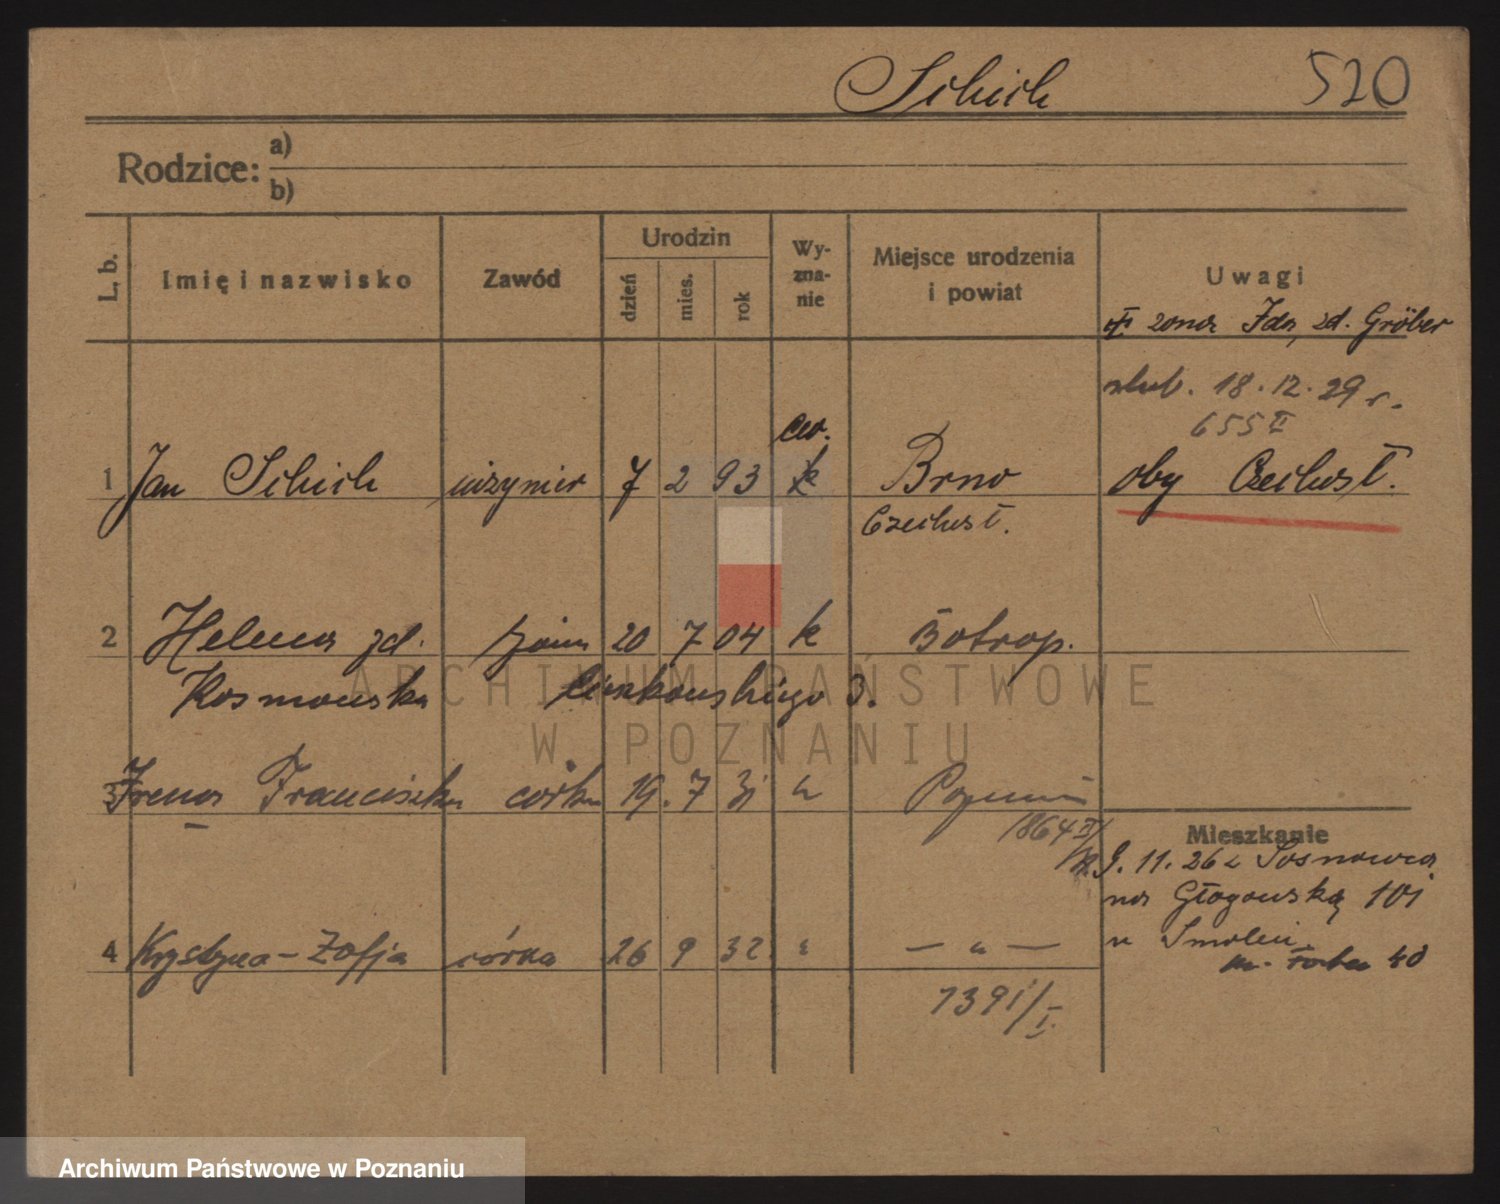 Schich 520
Rodzice: a)
b)
L. b. Imię i nazwisko Zawód Urodzin dzień mies. rok Wy-zna-nie Miejsce urodzenia i powiat Uwagi
żona Ida, zd. Gröber
ślub. 18.12.29 r.
655 II
ew.
1 Jan Schich inżynier 7 2 93 k Brno oby Czechosł.
Czechosł.
2 Helena zd. żona 20 7 04 k Botrop.
Kosmowska 3.
3 Irena Franciszka córka 19. 7 31 " Poznań
1864 II
Mieszkanie
9. 11. 26 z Sosnowca
na Głogowską 101
4 Krystyna-Zofja córka 26 9 32 " — " — u Smolei
40
1391/I.
ARCHIWUM PAŃSTWOWE
W POZNANIU
Archiwum Państwowe w Poznaniu